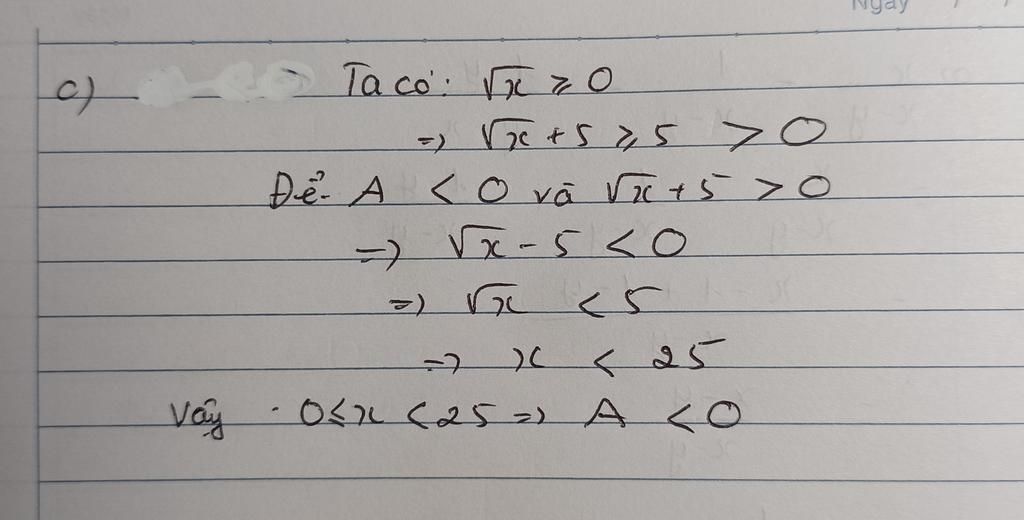 Ngày
c) Ta có: √x ≥ 0
=> √x + 5 ≥ 5 > 0
Để A < 0 và √x + 5 > 0
=> √x - 5 < 0
=> √x < 5
=> x < 25
Vậy · 0 ≤ x < 25 => A < 0